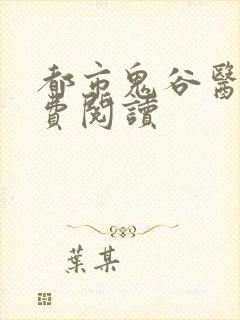 都市鬼谷醫
費閱讀
葉某